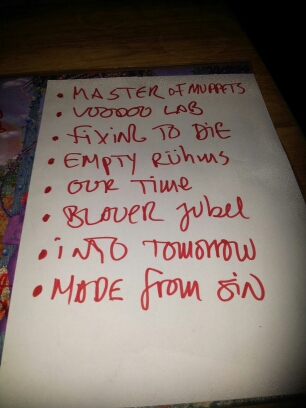 • MASTER of MUPPETS
• VOODOO LAB
• fixing TO DIE
• EMPTY Rühms
• OUR Time
• BLAUER Jubel
• iNTO TOMORROW
• MADE from SiN